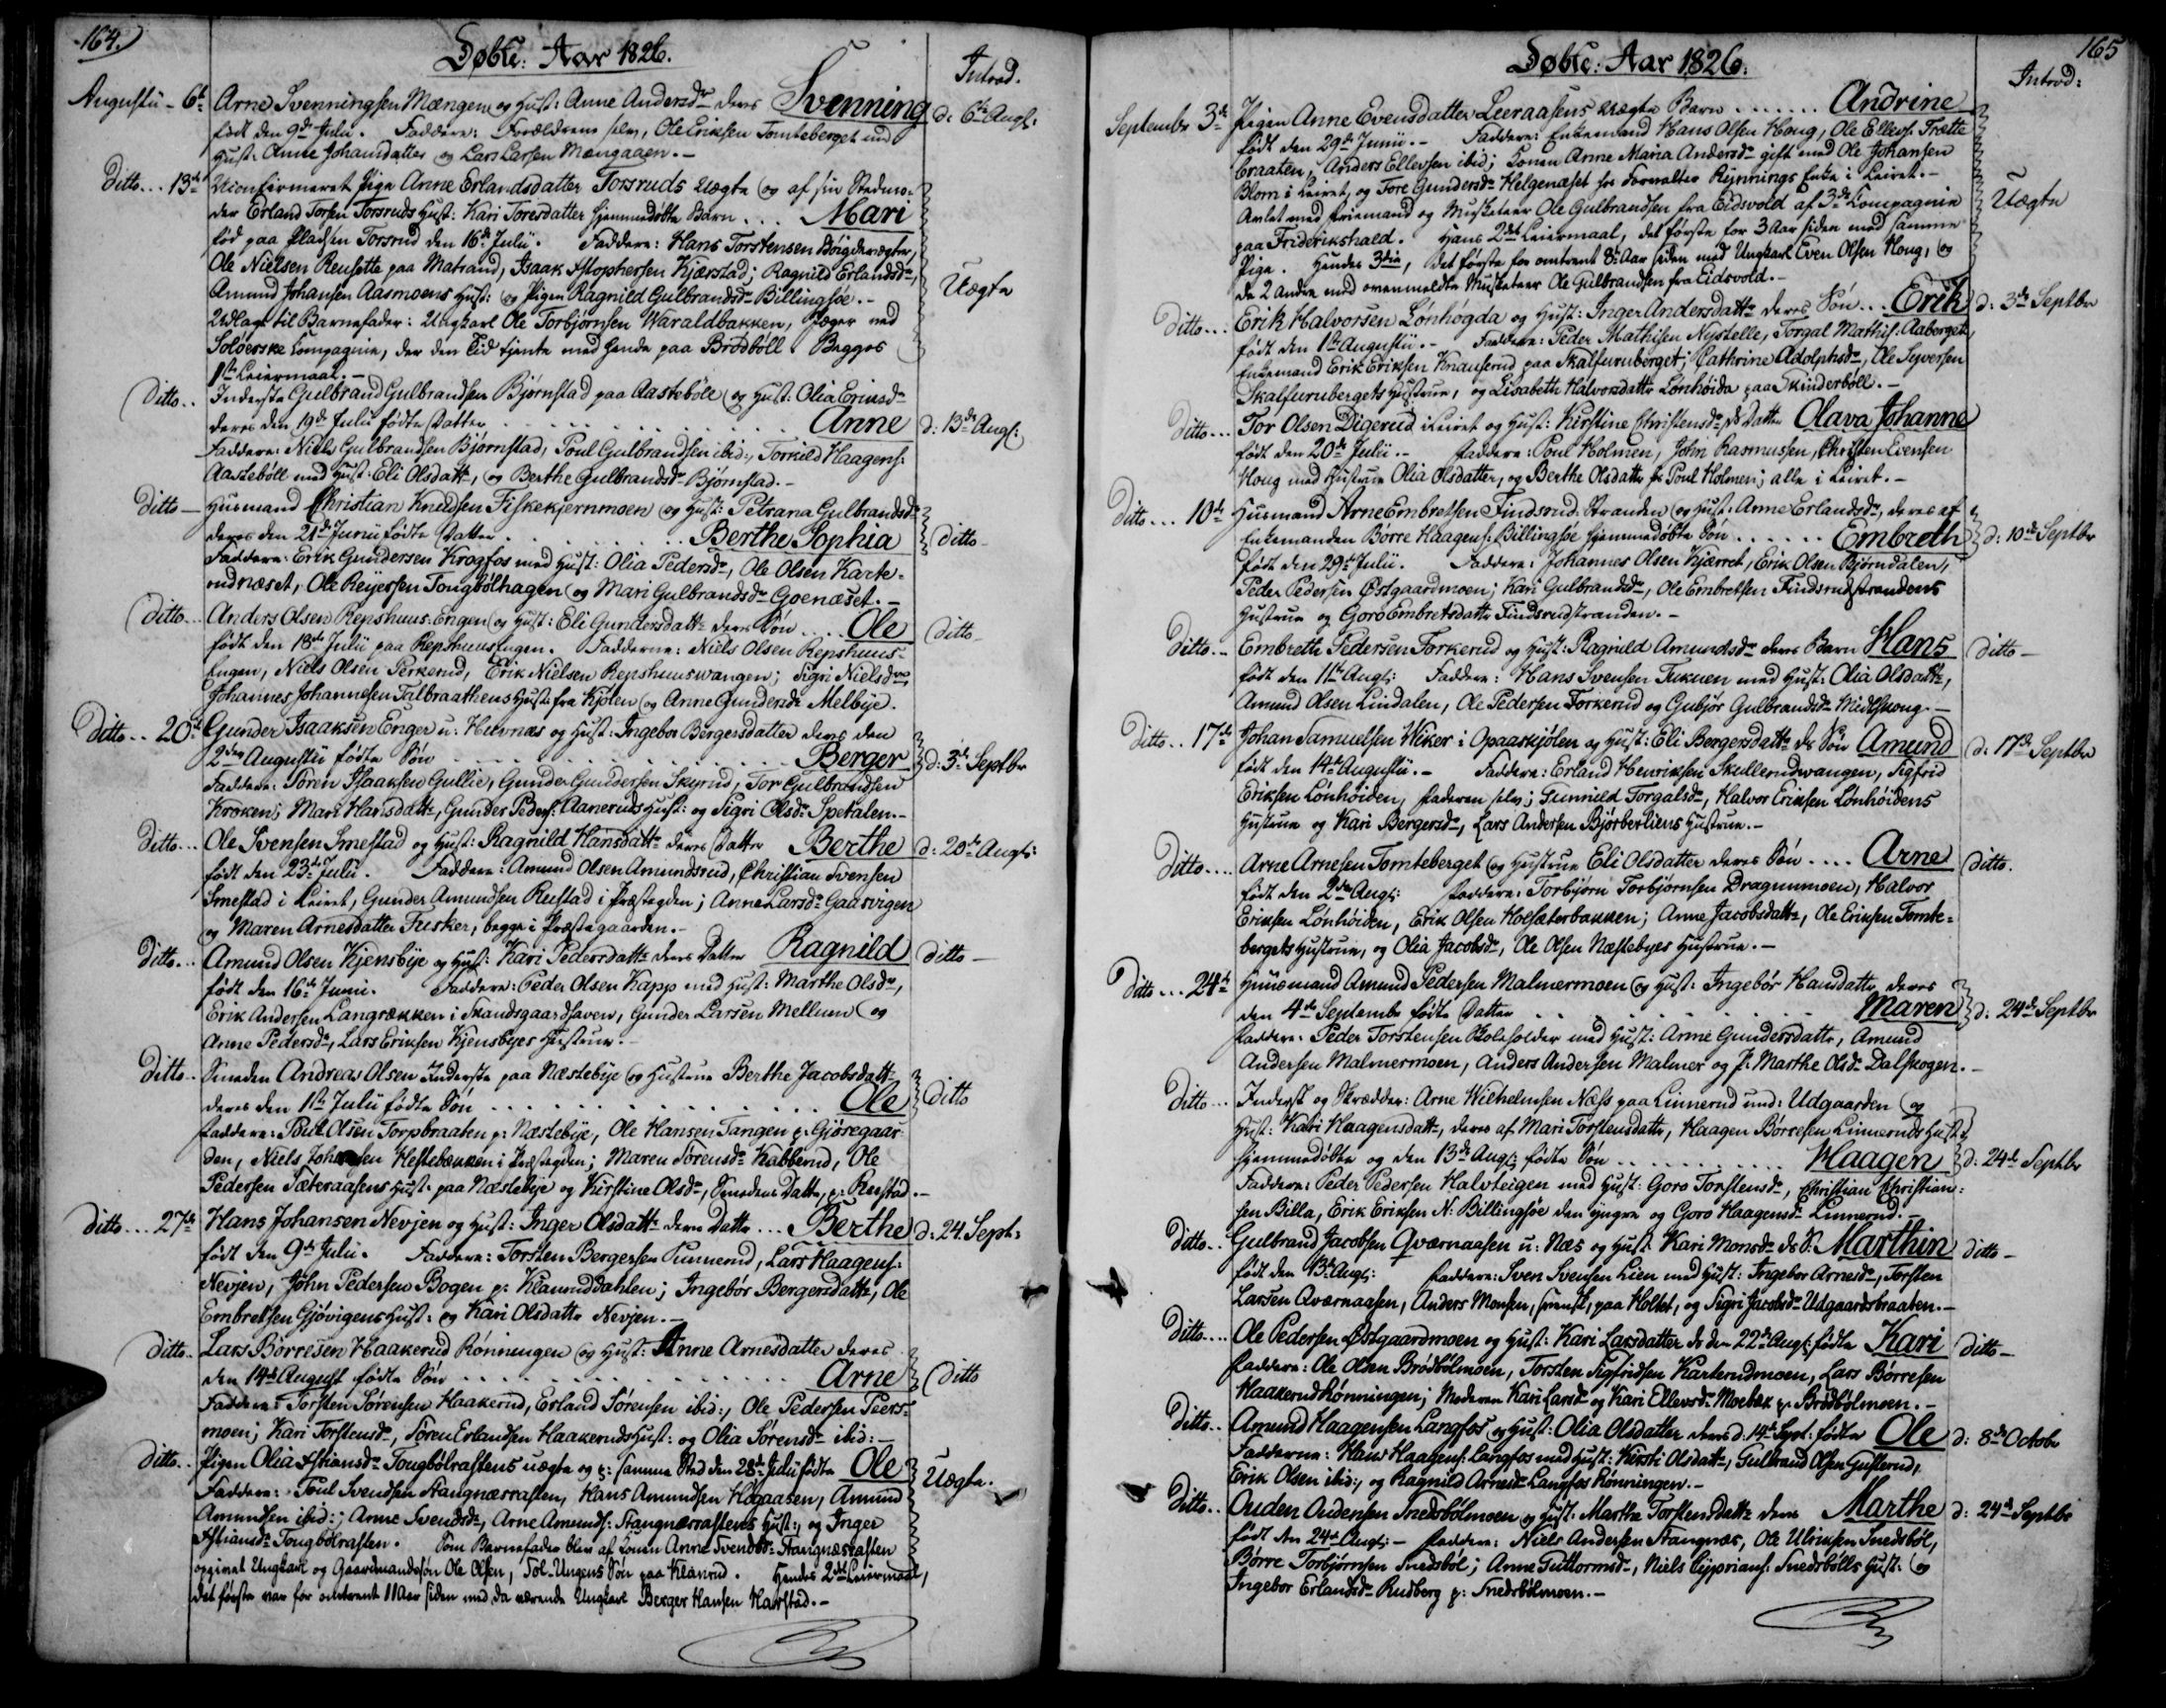 164.
Døbte: Aar 1826.
Introd.
Augustii - 6te Arne Svenningsen Mængen og Hust: Anne Andersdr deres Svenning d: 6te Augs:
født den 9de Julii. Faddere: Forældrene selv, Ole Eriksen Tomteberget med
Hust: Anne Johansdatter og Lars Larsen Mængaaen.-
Ditto... 13de Uconfirmeret Pige Anne Erlandsdatter Torsruds Uægte og af sin Stedmo-
der Erland Torsen Torsruds Hust: Kari Toresdatter hjemmedøbte Barn ... Mari
fød paa Pladsen Torsrud den 16de Julii. Faddere: Hans Torstensen
Ole Nielsen Reusette paa Matrand, Isaak Kstophersen Kjærstad; Ragnild Erlandsdr,
Amund Johansen Aasmoens Hust: og Pigen Ragnild Gulbrandsdr Billingsøe.- Uægte
Udlagt til Barnefader: Ungkarl Ole Torbjørnsen Waraldbakken, Jæger ved
Soløerske Compagnie, der den Tid tjente med hende paa Brødbøll. Begges
1ste Leiermaal.-
Ditto.. Inderste Gulbrand Gulbrandsen Bjørnstad paa Aastebøle og Hust: Olia Eriksdr
deres den 19de Julii fødte Datter . . . . Anne d: 13de Augs:
Faddere: Niels Gulbrandsen Bjørnstad, Poul Gulbrandsen ibid:, Torkild Haagens:
Aastebøll med Hust: Eli Olsdattr, og Berthe Gulbrandsdr Bjørnstad.-
Ditto - Husmand Christian Knudsen Fiskekjernmoen og Hust: Petrana Gulbrandsdr
deres den 21de Junii fødte Datter . . . . Berthe Sophia Ditto-
Faddere: Erik Gundersen Krogfos med Hust: Olia Pedersdr, Ole Olsen Karte-
rudnæset, Ole Reyersen Tongbølhagen og Mari Gulbrandsdr Goenæset.-
Ditto... Anders Olsen Repshuus-Engen og Hust: Eli Gundersdattr deres Søn .... Ole Ditto-
født den 18de Julii paa Repshuusengen. Fadderne: Niels Olsen Repshuus-
Engen, Niels Olsen Perkerud, Erik Nielsen Repshuuswangen; Sigri Nielsdr
Johannes Johannesen Talbraathens Hust: fra Kjølen og Anne Gundersdr Melbye.
Ditto.. 20de Gunder Isaaksen Enger u: Hevnæs og Hust: Ingebor Bergersdatter deres den
2den Augustii fødte Søn . . . . Berger d: 3de Septbr
Faddere: Søren Isaaksen Gullie, Gunder Gundersen Skyrud, Tor Gulbrandsen
Kroken; Mari Hansdattr, Gunder Peders: Aaneruds Hust: og Sigri Olsdr Spetalen.-
Ditto... Ole Svensen Smestad og Hust: Ragnild Hansdattr deres Datter Berthe d: 20de Augs:
født den 23de Julii. Faddere: Amund Olsen Amundsrud, Christian Svensen
Smestad i Leiret, Gunder Amundsen Rustad i Præstegden; Anne Larsdr Gaarvigen
og Maren Arnesdatter Fusker, begge i Præstegaarden.-
Ditto... Amund Olsen Kjensbye og Hust: Kari Pedersdattr deres Datter Ragnild Ditto-
født den 16de Junii. Faddere: Peder Olsen Kapp med Hust: Marthe Olsdr,
Erik Andersen Langrækken i Strandsgaardhaven, Gunder Larsen Mellum og
Anne Pedersdr, Lars Eriksen Kjensbyes Hustrue.-
Ditto.. Smeden Andreas Olsen Inderste paa Næstebye og Hustrue Berthe Jacobsdattr
deres den 1ste Julii fødte Søn . . . . Ole Ditto
Faddere: Poul Olsen Torpbraaten p: Næstebye, Ole Hansen Tangen p: Gjøregaar-
den, Niels Johnsen Hestebækken i Præstegden; Maren Sørensdr Kabberud, Ole
Pedersen Sæteraasens Hust: paa Næstebye og Kirstine Olsdr, Smedens Datter, p: Rustad.-
Ditto... 27de Hans Johansen Nevjen og Hust: Inger Olsdattr deres Datter ... Berthe d: 24. Sept:
født den 9de Julii. Faddere: Torsten Bergersen Tunnerud, Lars Haagens:
Nevjen, John Pedersen Bogen p: Klanruddahlen; Ingebór Bergersdattr, Ole
Embretsen Gjøvigens Hust: og Kari Olsdattr Nevjen.-
Ditto.. Lars Børresen Haakerud Rønningen og Hust: Anne Arnesdatter deres
den 14de August fødte Søn . . . . Arne Ditto
Faddere: Torsten Sørensen Haakerud, Erland Sørensen ibid:, Ole Pedersen Peers-
moen; Kari Torstensdr, Søren Erlandsen Haakeruds Hust: og Olia Sørensdr ibid:-
Ditto.. Pigen Olia Kstiansdr Tongbølrastens uægte og p: samme Sted den 28de Julii fødte Ole Uægte.
Faddere: Poul Svendsen Stangnæsrasten, Hans Amundsen Høgaasen, Amund
Amundsen ibid:; Anne Svendsdr, Arne Amunds: Stangnæsrastens Hust:, og Inger
Kstiansdr Tongbølrasten. Som Barnefader blev af Konen Anne Svendsdr Stangnæsrasten
opgivet Ungkarl og Gaardmandssøn Ole Olsen, Tol-Ungens Søn paa Klanrud. Hendes 2det Leiermaal,
det første var for omtrent 11 Aar siden med da værende Ungkarl Berger Hansen Harstad.-
165
Døbte: Aar 1826.
Introd:
Septembr 3de Pigen Anne Evensdatter Leeraasens uægte Barn ....... Andrine
født den 29de Junii.- Faddere: Enkemand Hans Olsen Houg, Ole Ellevs: Trætte
braaten, Anders Ellevsen ibid; Konen Anne Maria Andersdr gift med Ole Johansen
Blom i Leiret, og Tore Gundersdr Helgenæset hos Forvalter Rynnings Enke i Leiret.-
Avlet med Friemand og Musketeer Ole Gulbrandsen fra Eidsvold af 3de Compagnie Uægte
paa Friderikshald. Hans 2det Leiermaal, det første for 3 Aar siden med samme
Pige. Hendes 3die, det første for omtrent 8 Aar siden med Ungkarl Even Olsen Houg, og
de 2 andre med ovenmeldte Musketeer Ole Gulbrandsen fra Eidsvold.-
Ditto... Erik Halvorsen Lónhógda og Hust: Inger Andersdattr deres Søn .. Erik d: 3de Septbr
født den 1ste Augustii.- Faddere: Peder Mathisen Nystelle, Torgal Mathis: Aaberget,
Enkemand Erik Eriksen Knauserud paa Skalfuruberget; Cathrine Adolphsdr, Ole Syversen
Skalfurubergets Hustrue, og Lisabeth Halvorsdattr Lønhøida paa Skinderbøll.-
Ditto... Tor Olsen Digerud i Leiret og Hust: Kirstine Christensdr ds Datter Olava Johanne
født den 20de Julii.- Faddere: Poul Holmen, John Rasmussen, Christen Evensen
Houg med Hustrue Olia Olsdatter, og Berthe Olsdattr fr Poul Holmen; alle i Leiret.-
Ditto... 10de Husmand Arne Embretsen Findsrud-Stranden og Hust: Anne Erlandsdr, deres af
Enkemanden Børre Haagens: Billingsøe hjemmedøbte Søn ...... Embreth d: 10de Septbr
født den 29de Julii. Faddere: Johannes Olsen Kjærret, Erik Olsen Bjørndalen,
Peder Pedersen Østgaardmoen; Kari Gulbrandsdr, Ole Embretsen Findsrudstrandens
Hustrue og Goro Embretsdattr Findsrudstranden.-
Ditto... Embreth Pedersen Torkerud og Hust: Ragnild Amundsdr deres Barn Hans Ditto-
født den 11te Augs: Faddere: Hans Svensen Tukuen med Hust: Olia Olsdattr,
Amund Olsen Lindalen, Ole Pedersen Torkerud og Gubjør Gulbrandsdr Midtskoug.-
Ditto.. 17de Johan Samuelsen Wiker i Opaaskjølen og Hust: Eli Bergersdattr ds Søn Amund d: 17de Septbr
født den 14de Augustii.- Faddere: Erland Henriksen Skullerudwangen, Sigfrid
Eriksen Lønhøiden, Faderen selv; Gunnild Torgalsdr, Halvor Eriksen Lønhøidens
Hustrue og Kari Bergersdr, Lars Andersen Bjørberliens Hustrue.-
Ditto.... Arne Arnesen Tomteberget og Hustrue Eli Olsdatter deres Søn .... Arne Ditto.
født den 2den Augs: Faddere: Torbjørn Torbjørnsen Dragunmoen, Halvor
Eriksen Lønhøiden, Erik Olsen Holsæterbakken; Anne Jacobsdattr, Ole Eriksen Tomte-
bergets Hustrue, og Olia Jacobsdr, Ole Olsen Næstebyes Hustrue.-
Ditto... 24de Huusmand Amund Pedersen Malmermoen og Hust: Ingebór Hansdattr, deres
den 4de Septembr fødte Datter . . . . Maren d: 24de Septbr
Faddere: Peder Torstensen Skoleholder med Hust: Anne Gundersdattr, Amund
Andersen Malmermoen, Anders Andersen Malmer og P: Marthe Olsdr Dalskogen.-
Ditto... Inderst og Skrædder: Arne Wilhelmsen Næss paa Linnerud und: Udgaarden og
Hust: Kari Haagensdattr, deres af Mari Torstensdattr, Haagen Børresen Linneruds Hust:
hjemmedøbte og den 13de Augs: fødte Søn . . . . Haagen d: 24de Septbr
Faddere: Peder Pedersen Halvteigen med Hust: Goro Torstensdr, Christian Christian-
sen Billa, Erik Eriksen N: Billingsøe den yngre og Goro Haagensdr Linnerud.-
Ditto.. Gulbrand Jacobsen Qværnaasen u: Næs og Hust: Kari Monsdr ds S: Marthin Ditto-
født den 13de Augs: Faddere: Sven Svensen Lien med Hust: Ingebor Arnesdr, Torsten
Larsen Qværnaasen, Anders Monsen, svensk, paa Holtet, og Sigri Jacobsdr Udgaardsbraaten.-
Ditto.... Ole Pedersen Østgaardmoen og Hust: Kari Larsdatter ds den 22de Augs: fødte Kari Ditto-
Faddere: Ole Olsen Brødbølmoen, Torsten Sigfridsen Karterudmoen, Lars Børresen
Haakerudrønningen; Moderen Kari Larsdr og Kari Ellevsdr Moebæk p: Brødbølmoen.-
Ditto.. Amund Haagensen Langfos og Hust: Olia Olsdatter deres d: 14de Sept: fødte Ole d: 8de Octobr
Fadderne: Hans Haagens: Langfos med Hust: Kirsti Olsdattr, Gulbrand Olsen Gusterud,
Erik Olsen ibid:, og Ragnild Arnesdr Langfos Rønningen.-
Ditto.. Ouden Oudensen Snedsbølmoen og Hust: Marthe Torstensdattr deres Marthe d: 24de Septbr
født den 24de Augs:- Faddere: Niels Andersen Stangnæs, Ole Ulriksen Snedsbøl,
Børre Torbjørnsen Snedsbøl; Anne Guttormsdr, Niels Cyprians: Snedsbølls Hust: og
Ingebor Erlandsdr Rudberg p: Snedsbølmoen.-